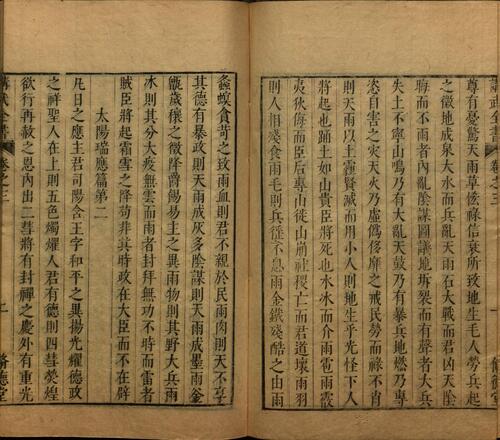 尊有憂驚天雨草係祿信衰所致地生毛人勞兵起
之徵地成泉大水而兵亂天雨石大戰而君凶天陰
晦而不雨者內亂陰謀圖議地坼裂而有聲者大兵
失土不寧山鳴乃有大亂天鼓乃有暴兵地燃乃專
恣自害之灾天火乃虛偽侈靡之戒民勞而祿不肯
則天雨以土霾賢滅而用小人則地生乎光怪下人
將起也踊土如山貴臣將死也水冰而介雨雹雨霰
夷狄侮而臣后專山徙山崩社稷亡而君道壞雨羽
則人相殘食雨毛則兵征不息雨金鐵殘酷之由雨
螽螟食苛之致雨血則君不親於民雨肉則天不享
其德有暴政則天雨成灰多陰謀則天雨成墨雨金
甑歲穰之徵降爵錫易主之異雨物則其野大兵雨
冰則其分大疫無雲而雨者封拜無功不時而雷者
賊臣將起霜雪之降苟非其時政在大臣而不在辟
太陽瑞應篇第二
凡日之應主君司陽含王字和平之異揚光耀德政
之祥聖人在上則五色燭耀人君有德則四彗熒煌
欲行再赦之恩內出二彗將有封禪之慶外有重光
講武全書
卷之三
脩德堂